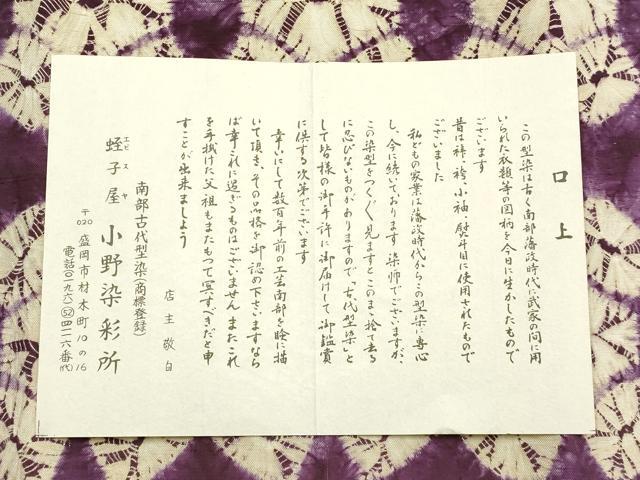 口上
この型染は古く南部藩政時代、武家の間に用
いられた衣類等の図柄を今日に生かしたもので
ございます
昔は裃、袴、小袖、熨斗目に使用されたもので
ございました
私どもの家業は藩政時代からこの型染に専心
し、今に続いております染師でございますが、
この染型をつくづく見ますとこのまゝ捨て去る
に忍びないものがありますので「古代型染」と
して皆様の御手許に御届けして御鑑賞
に供する次第でございます
幸いにして数百年前の工芸南部を瞼に描
いて頂き、その品格を御認め下さいますなら
ば幸これに過ぎるものはございません またこれ
を手掛けた父祖もまたもって冥すべきだと申
すことが出来ましよう
店主敬白
南部古代型染(商標登録)
蛭子屋 小野染彩所
エビスヤ
〒020 盛岡市材木町10の16
電話(〇一九六)(52)四一一六番(代)